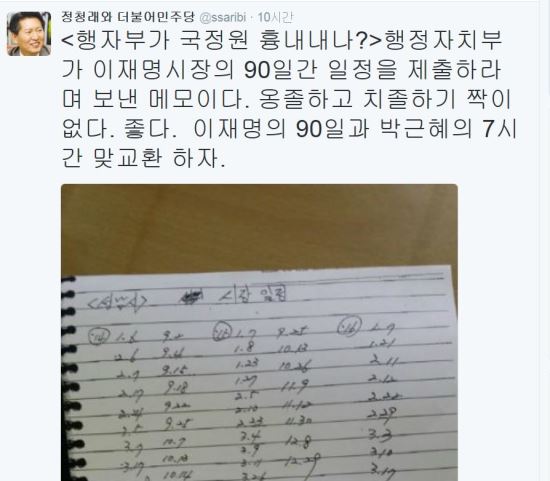 정청래와 더불어민주당 @ssaribi · 10시간
<행자부가 국정원 흉내내나?>행정자치부
가 이재명시장의 90일간 일정을 제출하라
며 보낸 메모이다. 옹졸하고 치졸하기 짝이
없다. 좋다.  이재명의 90일과 박근혜의 7시
간 맞교환 하자.
<성남시> 시장 일정
'14 1.6 9.2 '15 1.7 9.25 '16 1.7
2.6 9.4 1.8 10.13 1.21
2.7 9.15 1.23 10.26 2.11
2.17 9.18 1.27 11.9 2.12
2.24 9.22 2.5 11.12 2.22
9.25 2.23 11.30 2.29
3.7 10.7 3.4 12.8 3.3
3.17 10.13 3.9 12.29 3.10
10.14 3.11 3.17
3.26